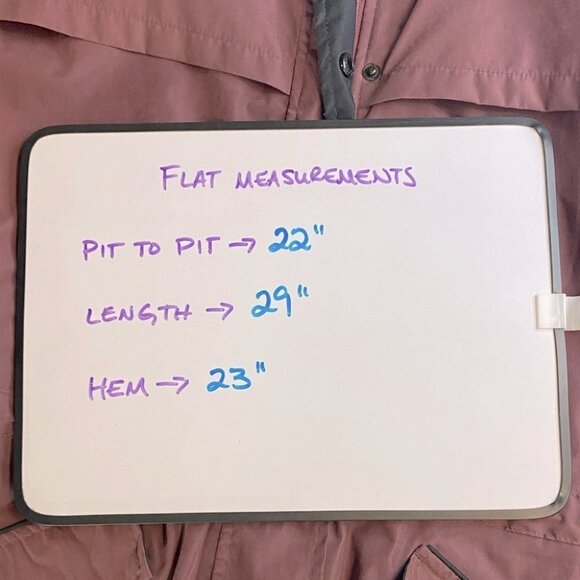 FLAT MEASUREMENTS
PIT TO PIT → 22"
LENGTH → 29"
HEM → 23"